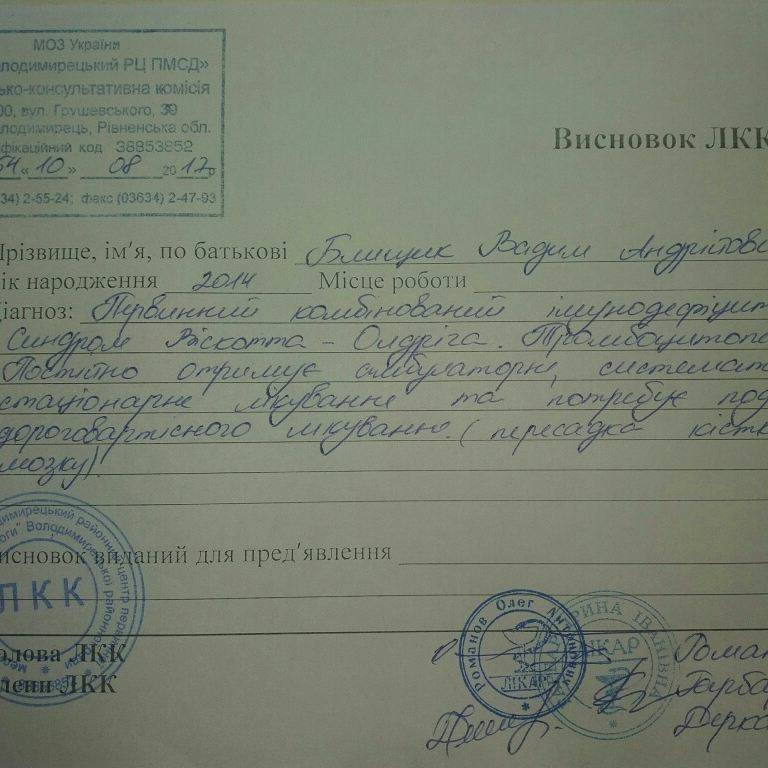 МОЗ України
олодимирецький РЦ ПМСД»
сько-консультативна комісія
00, вул. Грушевського, 39
олодимирець, Рівненська обл.
фікаційний код 38853852
54 «10» 08 2017р
34) 2-55-24; факс (03634) 2-47-93
Висновок ЛКК
Прізвище, ім'я, по батькові Блищик Вадим Андрійови
ік народження 2014 Місце роботи
іагноз: Первинний комбінований імунодефіцит
Синдром Віскотта - Олдріга. Тромбоцитопе
Постійно отримує амбулаторне, системати
стаціонарне лікування та потребує под
дороговартісного лікування. (пересадка кістк
мозку).
исновок виданий для пред'явлення
ЛКК
олова ЛКК
лени ЛКК
Романов Олег Антонович
ЛІКАР
ІРИНА ІВАНІВНА
ЛІКАР
Роман
Гарба
Дерка